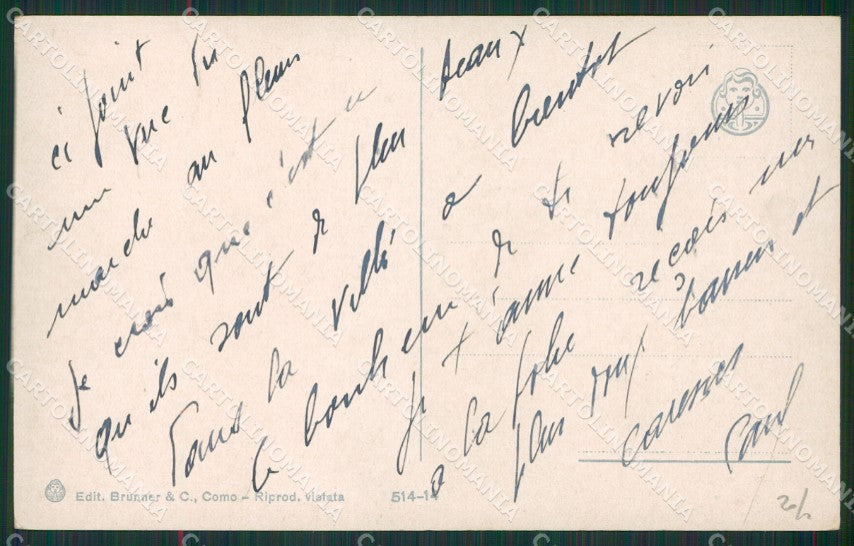 ci joint
une vue du
marche au fleurs
Je crois que c'est
qu'ils sont le plus beaux
dans la ville a bientot
le bonheur de te revoir
Je t'aime toujours
a la folie recois mes
plus doux baisers et
caresses
Paul
Edit. Brunner & C., Como - Riprod. vietata
514-14
CARTOLINOMANIA